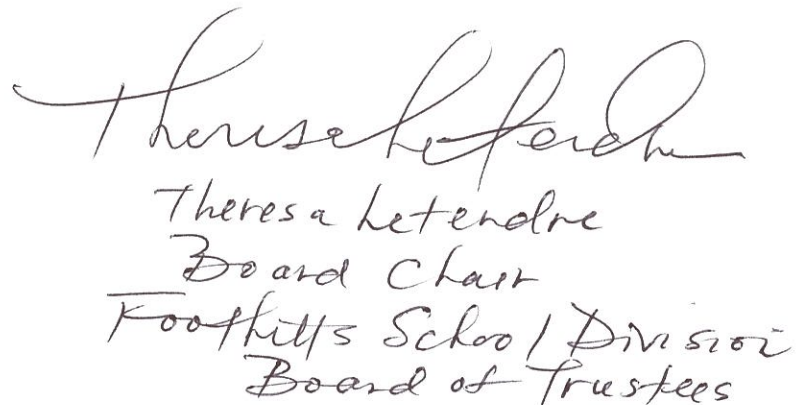 Theresa Letendre
Theresa Letendre
Board Chair
Foothills School Division
Board of Trustees